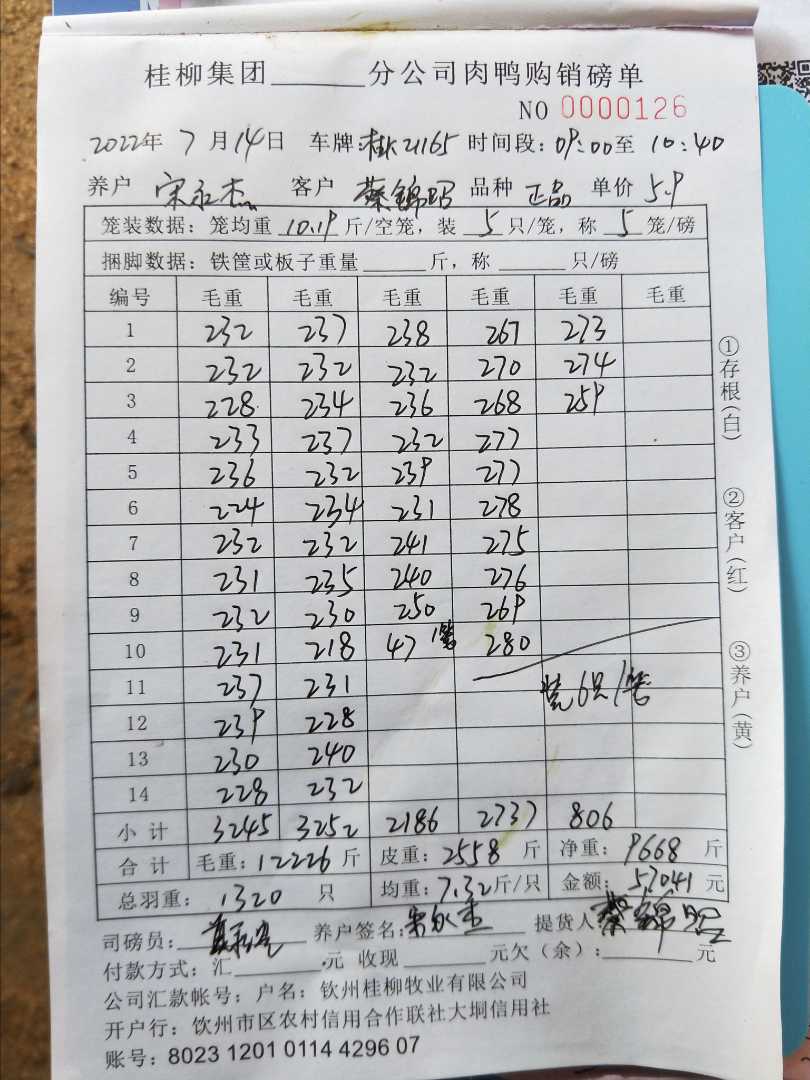 桂柳集团______分公司肉鸭购销磅单
NO 0000126
2022年 7 月 14日 车牌:桂K21165 时间段:09:00至 10:40
养户 宋永杰 客户 蔡锦昭 品种 正品 单价 5.9
笼装数据: 笼均重 10.19 斤/空笼, 装 5 只/笼, 称 5 笼/磅
捆脚数据: 铁筐或板子重量______斤, 称______只/磅
编号 毛重 毛重 毛重 毛重 毛重 毛重
1 232 237 238 267 273
2 232 232 232 270 274
3 228 234 236 268 259
4 233 237 232 277
5 236 232 239 277
6 224 234 231 278
7 232 232 241 275
8 231 235 240 276
9 232 230 250 269
10 231 218 47 1笼 280
11 237 231 装6只/笼
12 239 228
13 230 240
14 228 232
小 计 3245 3252 2186 2737 806
合 计 毛重: 12226 斤 皮重: 2558 斤 净重: 9668 斤
总羽重: 1320 只 均重: 7.32 斤/只 金额: 57041 元
司磅员: 养户签名: 宋永杰 提货人 蔡锦昭
付款方式: 汇______元 收现______元欠(余):______元
公司汇款帐号: 户名: 钦州桂柳牧业有限公司
开户行: 饮州市区农村信用合作联社大垌信用社
账号: 8023 1201 0114 4296 07
①存根(白)
②客户(红)
③养户(黄)